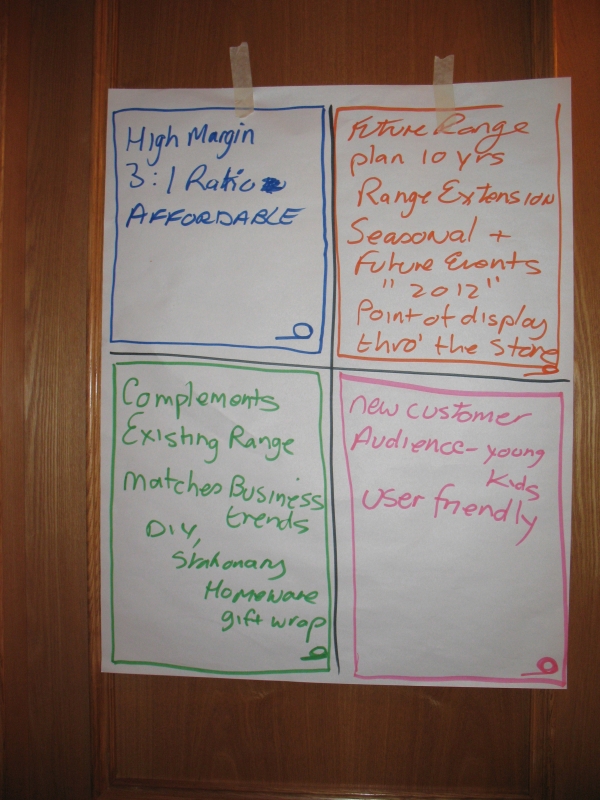 High Margin
3:1 Ratio
AFFORDABLE
Future Range
plan 10 yrs
Range Extension
Seasonal +
Future Events
"2012"
Point of display
thro' the Store
Complements
Existing Range
matches Business
trends
DIY,
Stationary
Homeware
gift wrap
new customer
Audience - young
Kids
user friendly